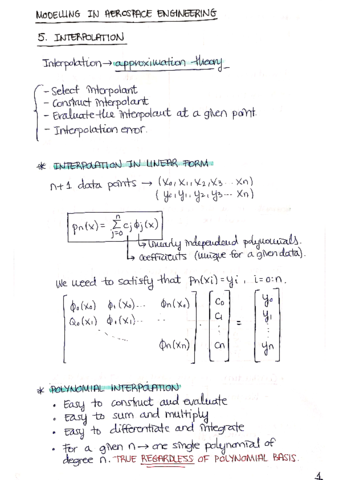 MODELLING IN AEROSPACE ENGINEERING
5. INTERPOLATION
Interpolation → approximation theory
- Select interpolant
- Construct interpolant
- Evaluate the interpolant at a given point
- Interpolation error.
* INTERPOLATION IN LINEAR FORM
n+1 data points → (x0, x1, x2, x3 ... xn)
(y0, y1, y2, y3 ... xn)
pn(x) = Σ_{j=0}^{n} cj ϕj(x)
→ linearly independent polynomials.
→ coefficients (unique for a given data).
We need to satisfy that pn(xi) = yi , i=0:n.
[ϕ0(x0) ϕ1(x0)... ϕn(x0)] · [c0] = [y0]
[ϕ0(x1) ϕ1(x1)...] [c1] [y1]
[ϕn(xn)] [cn] [yn]
* POLYNOMIAL INTERPOLATION
• Easy to construct and evaluate
• Easy to sum and multiply
• Easy to differentiate and integrate
• For a given n → one single polynomial of
degree n. TRUE REGARDLESS OF POLYNOMIAL BASIS.
1